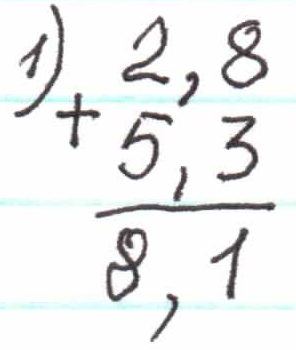 1) 2,8
+ 5,3
8,1